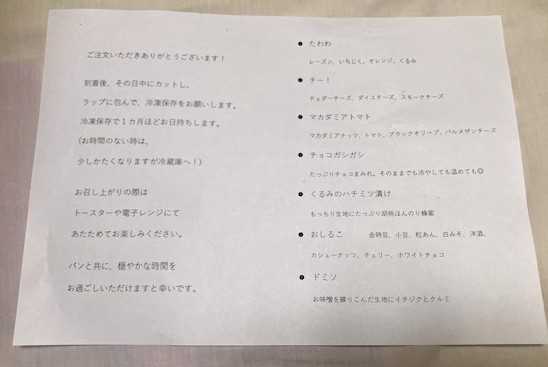 ご注文いただきありがとうございます!
到着後、その日中にカットし、
ラップに包んで、冷凍保存をお願いします。
冷凍保存で1カ月ほどお日持ちします。
(お時間のない時は、
少しかたくなりますが冷蔵庫へ!)
お召し上がりの際は
トースターや電子レンジにて
あたためてお楽しみください。
パンと共に、穏やかな時間を
お過ごしいただけますと幸いです。
● たわわ
レーズン、いちじく、オレンジ、くるみ
● チー!
チェダーチーズ、ダイスチーズ、スモークチーズ
● マカダミアトマト
マカダミアナッツ、トマト、ブラックオリーブ、パルメザンチーズ
● チョコガシガシ
たっぷりチョコまみれ。そのままでも冷やしても温めても◎
● くるみのハチミツ漬け
もっちり生地にたっぷり胡桃ほんのり蜂蜜
● おしるこ 金時豆、小豆、粒あん、白みそ、洋酒、
カシューナッツ、チェリー、ホワイトチョコ
● ドミソ
お味噌を練りこんだ生地にイチジクとクルミ